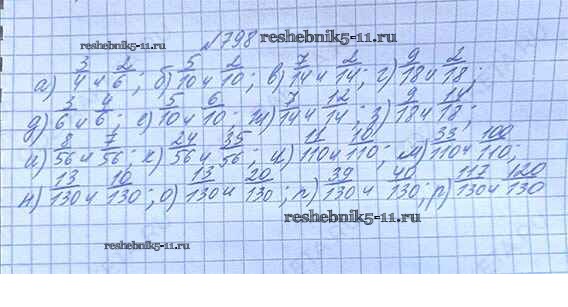 №798
reshebnik5-11.ru
reshebnik5-11.ru
а) 3/4 и 2/6; б) 5/10 и 2/10; в) 7/14 и 2/14; г) 9/18 и 2/18;
д) 3/6 и 4/6; е) 5/10 и 6/10; ж) 7/14 и 12/14; з) 9/18 и 14/18;
и) 8/56 и 7/56; к) 24/56 и 35/56; л) 11/110 и 10/110; м) 33/110 и 100/110;
н) 13/130 и 10/130; о) 13/130 и 20/130; п) 39/130 и 40/130; р) 117/130 и 120/130
reshebnik5-11.ru
reshebnik5-11.ru